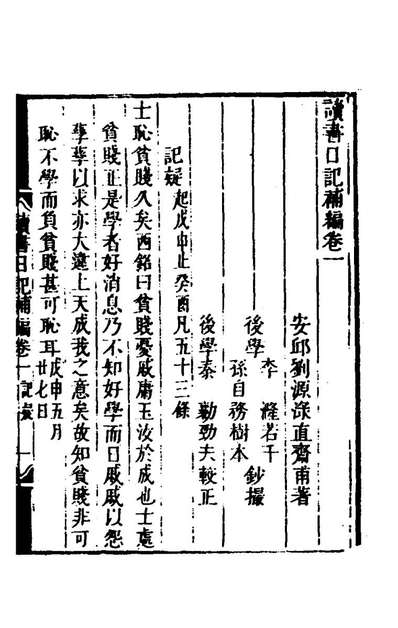 讀書日記補編卷一
安邱劉源淥直齋甫著
後學
李 漋若千
孫自務樹本
鈔撮
後學秦 勷勁夫較正
記疑起戊申止癸酉凡五十三條
士恥貧賤久矣西銘曰貧賤憂戚庸玉汝於成也士處
貧賤正是學者好消息乃不知好學而日戚戚以怨
孳孳以求亦大違上天成我之意矣故知貧賤非可
恥不學而負貧賤甚可恥耳戊申五月廿七日
讀書日記補編卷一 記疑 一